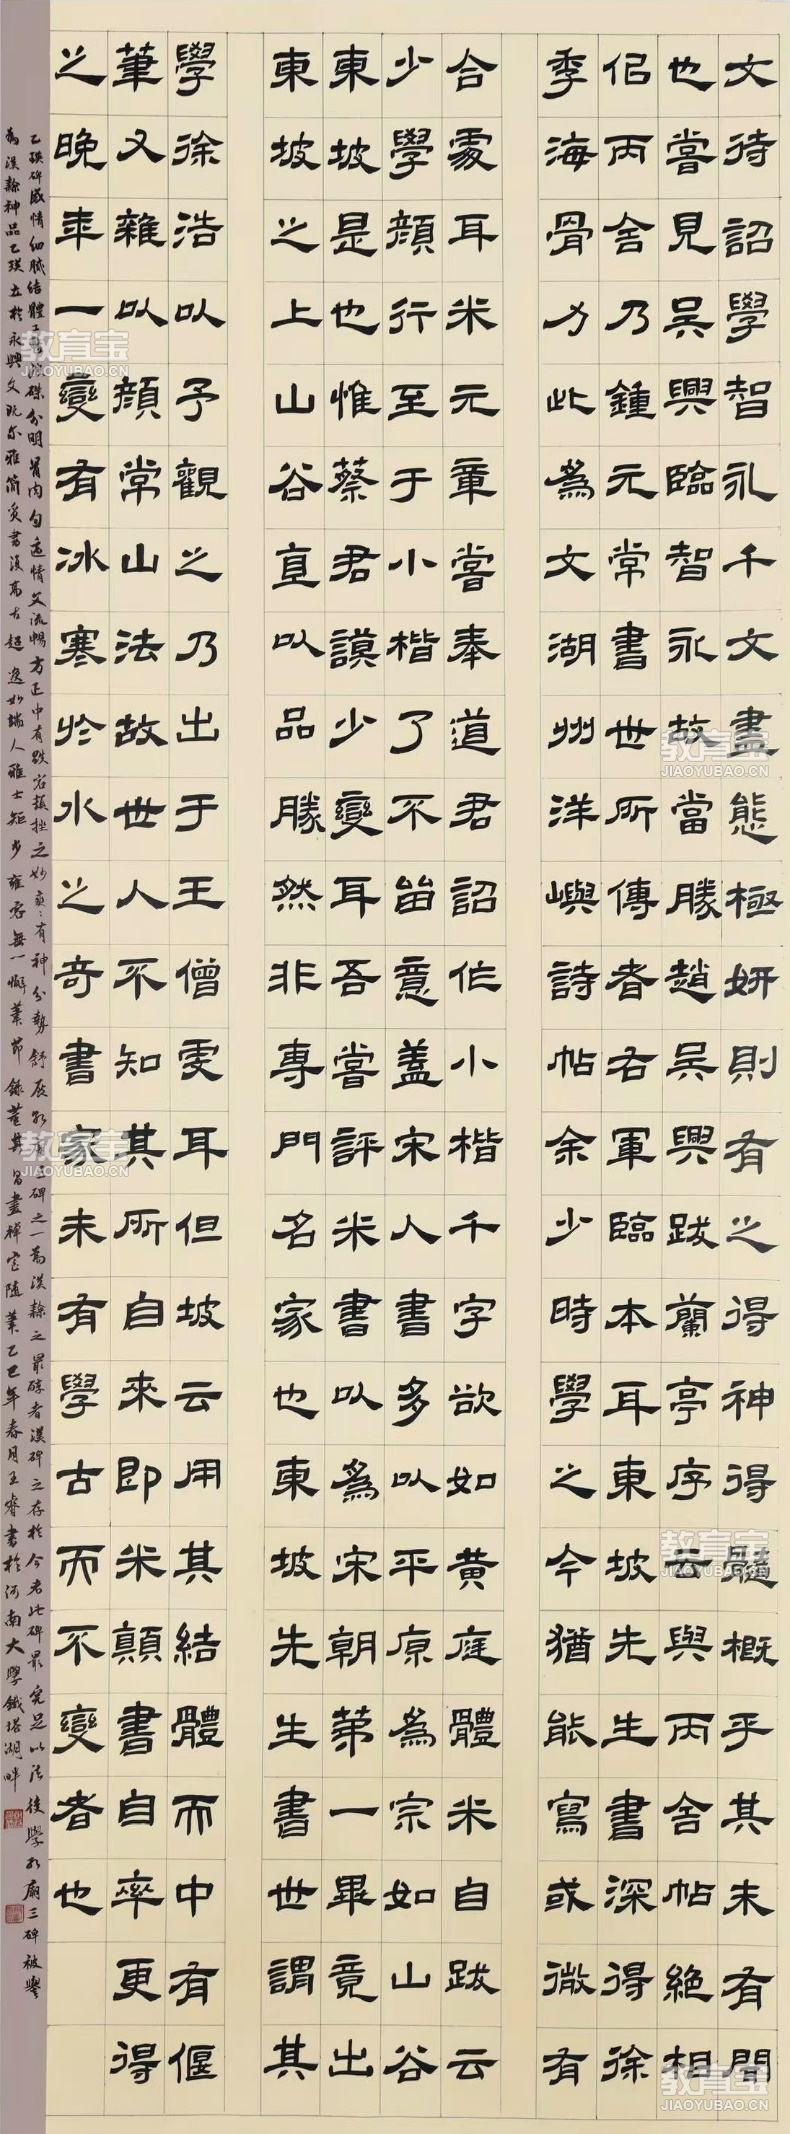 文待詔學智永千文盡態極妍則有之得神得髓概乎其未有聞
也嘗見吳興臨智永故當勝趙吳興跋蘭亭序云與丙舍帖絕相
侣丙舍乃鍾元常書世所傳者右軍臨本耳東坡先生書深得徐
季海骨力此為文湖州洋嶼詩帖余少時學之今猶能寫或微有
合處耳米元章嘗奉道君詔作小楷千字欲如黃庭體米自跋云
少學顏行至于小楷了不留意蓋宋人書多以平原為宗如山谷
東坡是也惟蔡君謨少變耳吾嘗評米書以為宋朝第一畢竟出
東坡之上山谷直以品勝然非專門名家也東坡先生書世謂其
學徐浩以予觀之乃出于王僧虔耳但坡云用其結體而中有偃
筆又雜以顏常山法故世人不知其所自來即米顛書自率更得
之晚年一變有冰寒於水之奇書家未有學古而不變者也
乙瑛碑感情細膩結體分明骨肉勻適情文流暢方正中有跌宕頓挫之妙奕奕有神分勢舒展碑之一為漢隸之最醇者漢碑之存於今者此碑最完足以法後學孔廟三碑被譽
為漢隸神品乙瑛立於永興文既爾雅簡質書復高古超逸妙端人雅士矩步雍容無一懈筆節錄董其昌畫禪室隨筆乙巳年春月王睿書於河南大學鐵塔湖畔
教育宝
JIAOYUBAO.CN
教育宝
JIAOYUBAO.CN
教育宝
JIAOYUBAO.CN
教育宝
JIAOYUBAO.CN
教育宝
JIAOYUBAO.CN